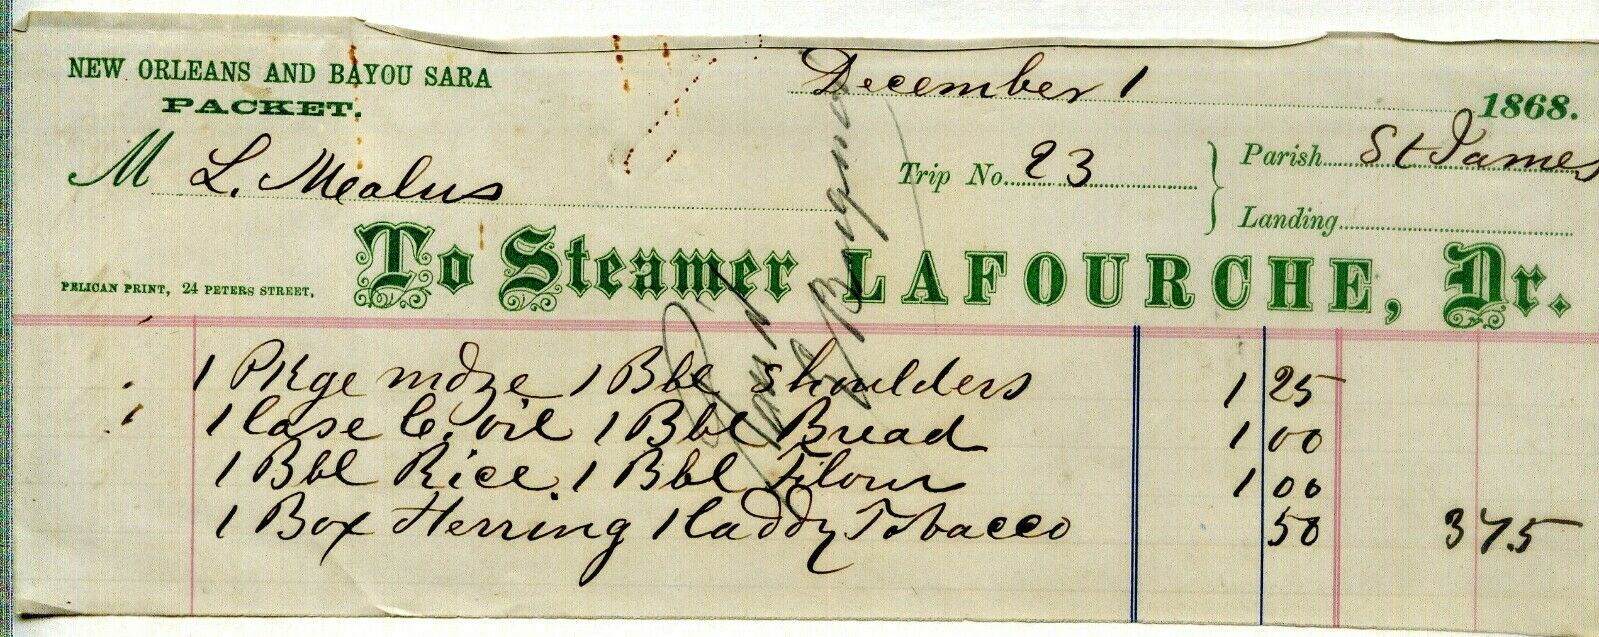 NEW ORLEANS AND BAYOU SARA
PACKET.
December 1 1868.
M L. Mealus
Trip No. 23
Parish St James
Landing
To Steamer LAFOURCHE, Dr.
PELICAN PRINT, 24 PETERS STREET,
1 PKge mdze 1 Bbl Shoulders 1 25
1 Case C. oil 1 Bbl Bread 1 00
1 Bbl Rice. 1 Bbl Flour 1 00
1 Box Herring 1 Caddy Tobacco 50 3 75